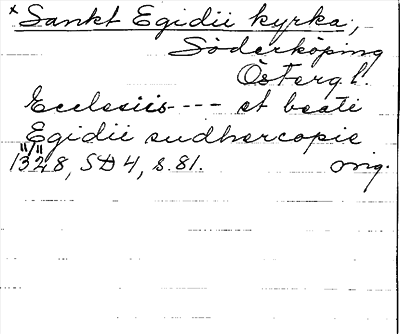 x Sankt Egidii kyrka,
Söderköping
Östergl.
Ecclesiis --- et beati
Egidii sudhercopie
11/11
1328, SD 4, s. 81. orig.